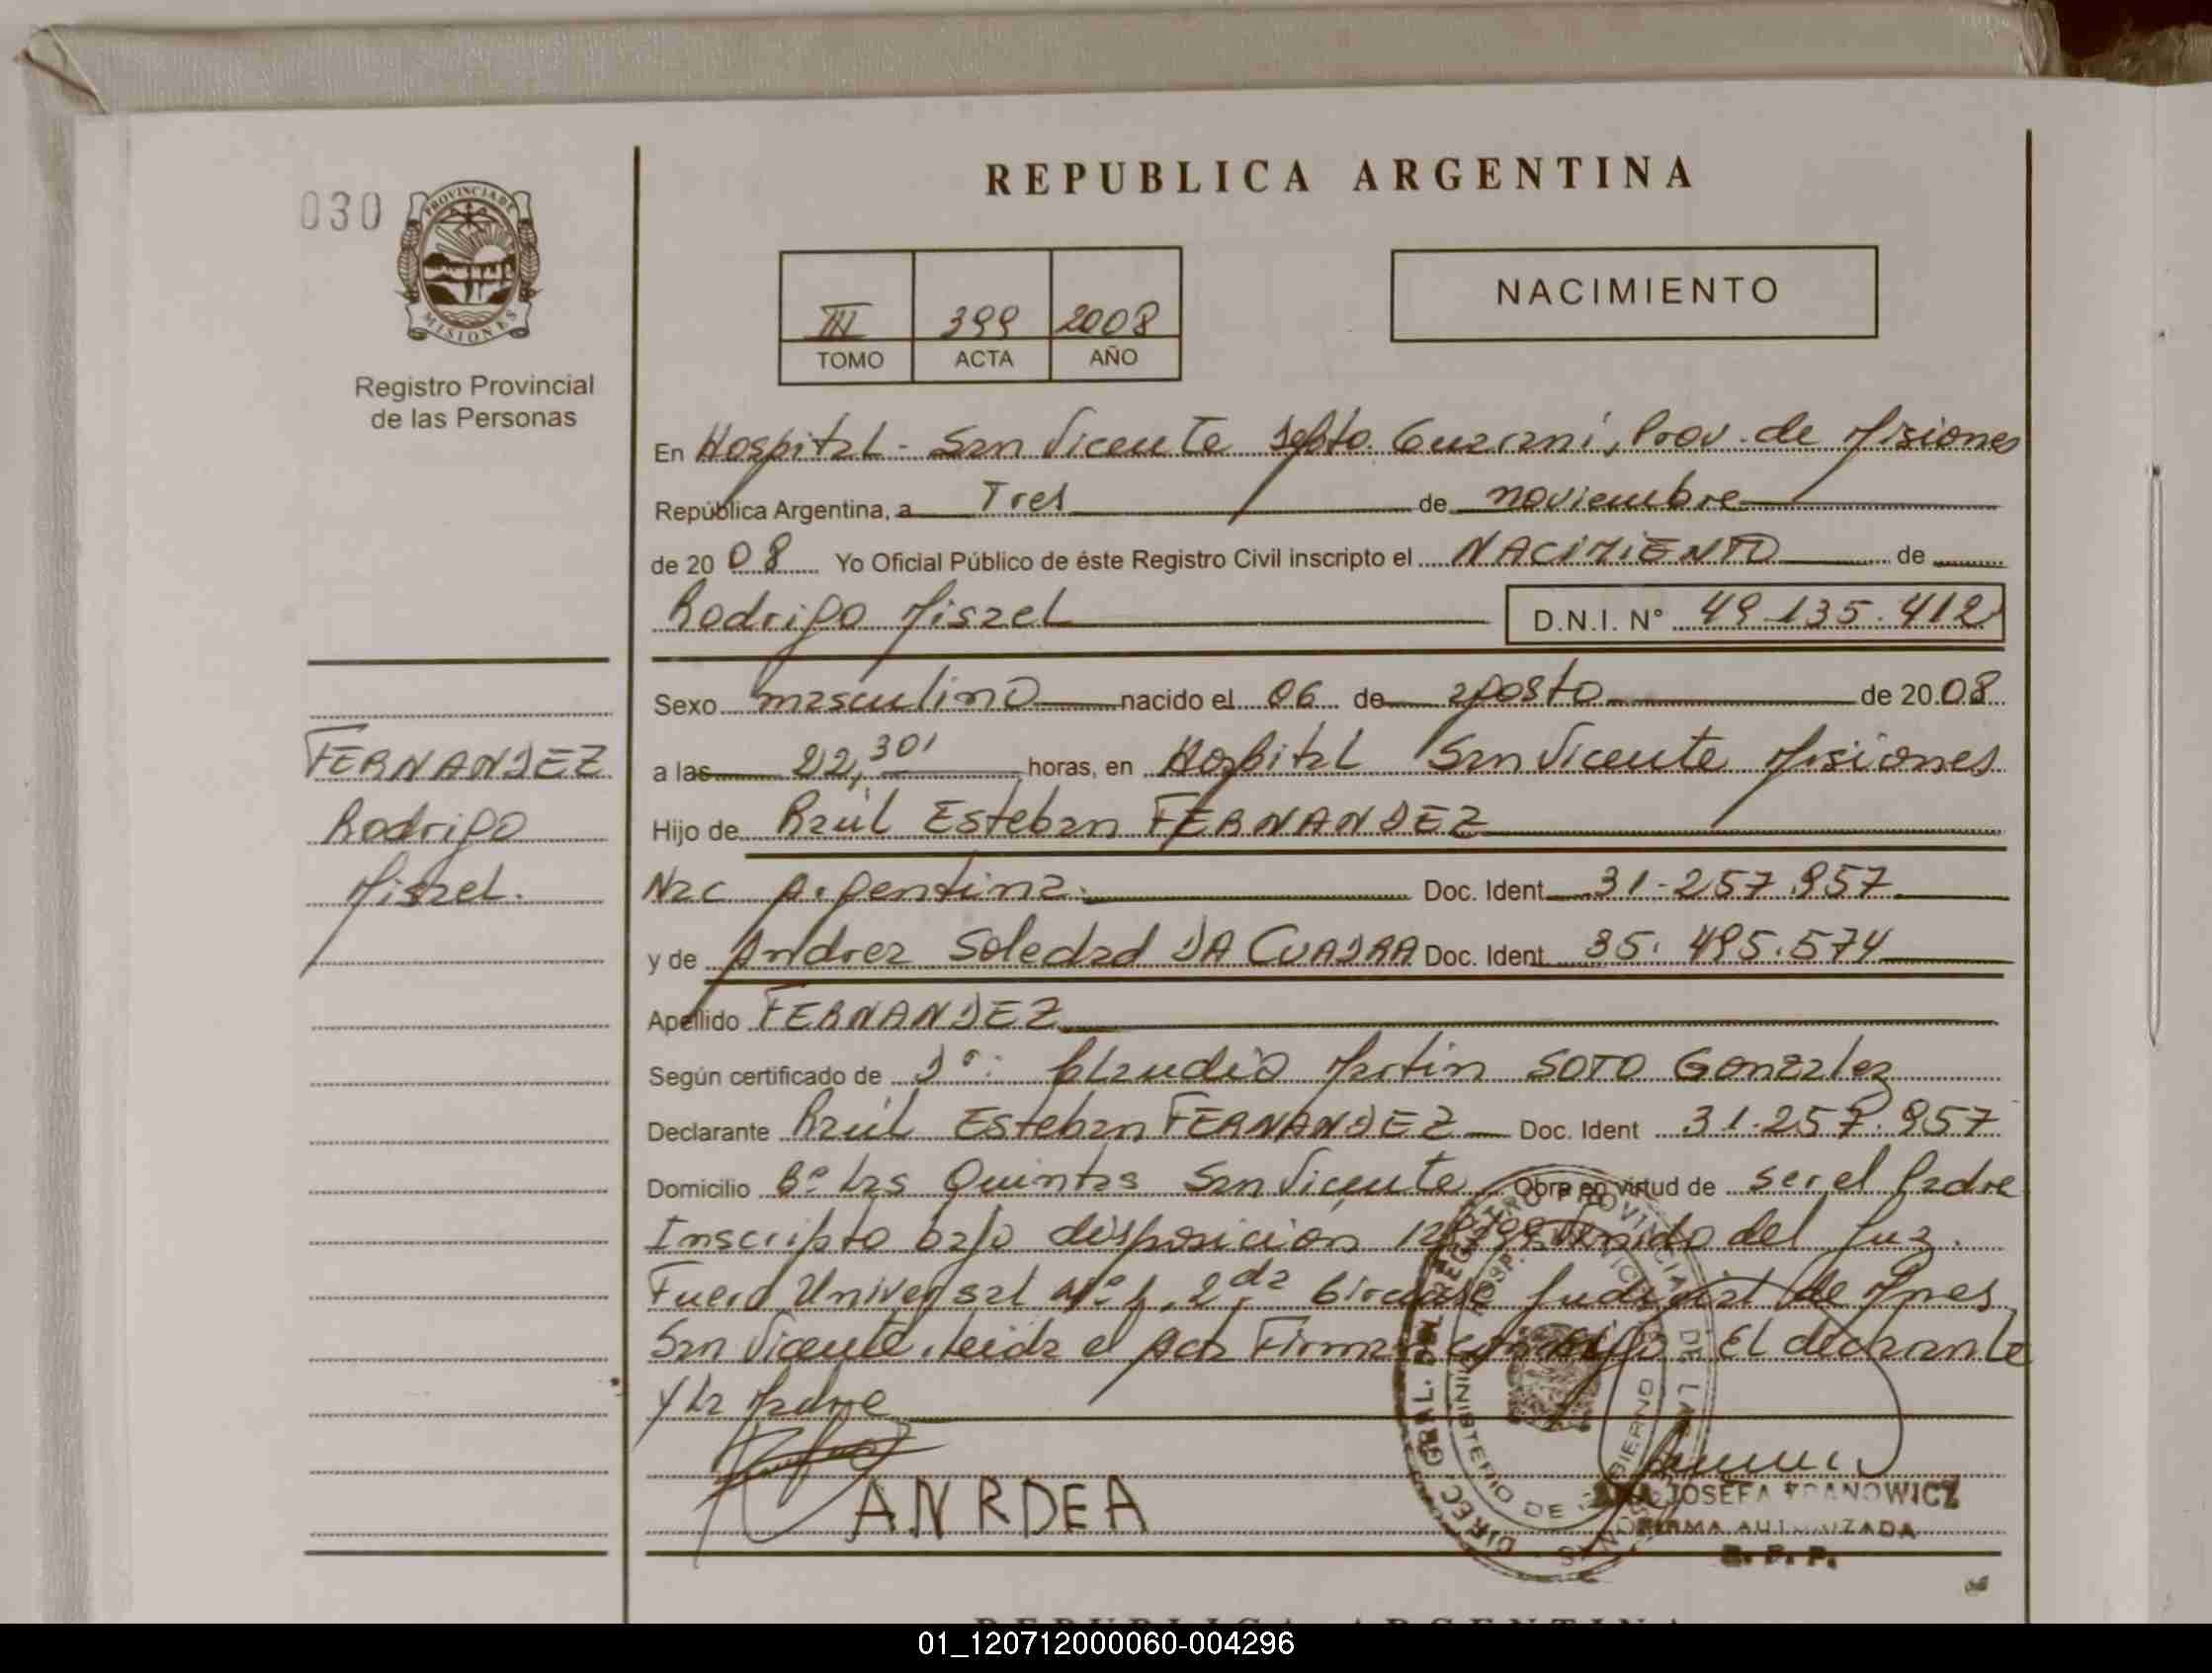 030
PROVINCIA DE
MISIONES
Registro Provincial
de las Personas
REPUBLICA ARGENTINA
III 399 2008
TOMO ACTA AÑO
NACIMIENTO
En Hospital - San Vicente Depto. Guarani, Prov. de Misiones
República Argentina, a Tres de noviembre
de 20 08 Yo Oficial Público de éste Registro Civil inscripto el NACIMIENTO de
Rodrigo Misael D.N.I. N° 49.135.412
Sexo masculino nacido el 06 de agosto de 20 08
a las 22,30' horas, en Hospital San Vicente Misiones
Hijo de Raúl Esteban FERNANDEZ
Nac Argentina. Doc. Ident 31.257.957
y de Andrea Soledad DA CUADRA Doc. Ident 35.495.574
Apellido FERNANDEZ
Según certificado de Dº: Claudio Martin SOTO Gonzalez
Declarante Raúl Esteban FERNANDEZ Doc. Ident 31.257.957
Domicilio Bº Las Quintas San Vicente Obra en virtud de ser el Padre
Inscripto bajo disposición del Juz.
Fuero Universal Nº 1, 2da Judicial de Mnes
San Vicente, leida el Acta Firman El declarante
y la Madre
ANRDEA
JOSEFA
FIRMA AUTORIZADA
R. P. P.
FERNANDEZ
Rodrigo
Misael.
REPUBLICA ARGENTINA
01_120712000060-004296